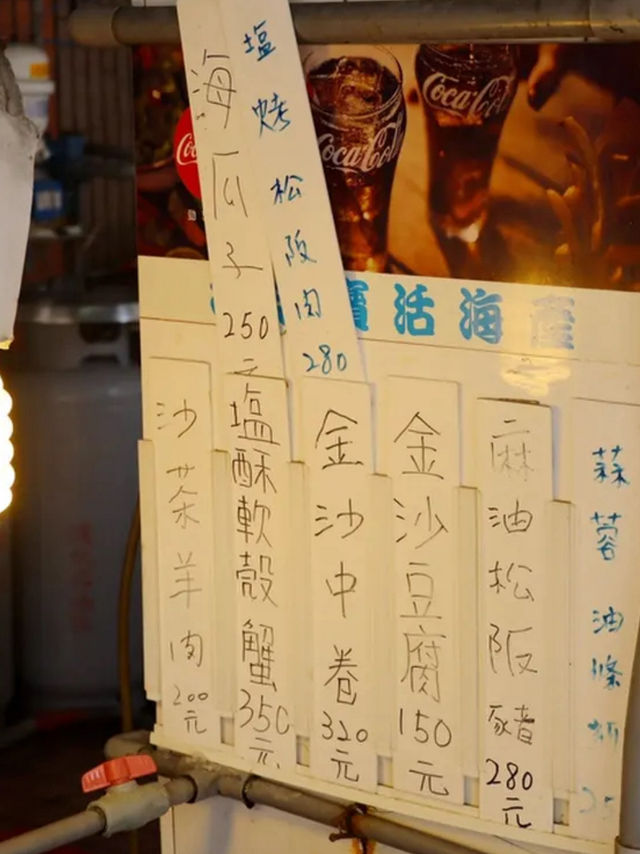 海瓜子250元
塩烤松阪肉280
Coca-Cola
Coca-Cola
活海產
沙茶羊肉200元
塩酥軟殼蟹350元
金沙中卷320元
金沙豆腐150元
麻油松阪豬280元
蒜蓉油條